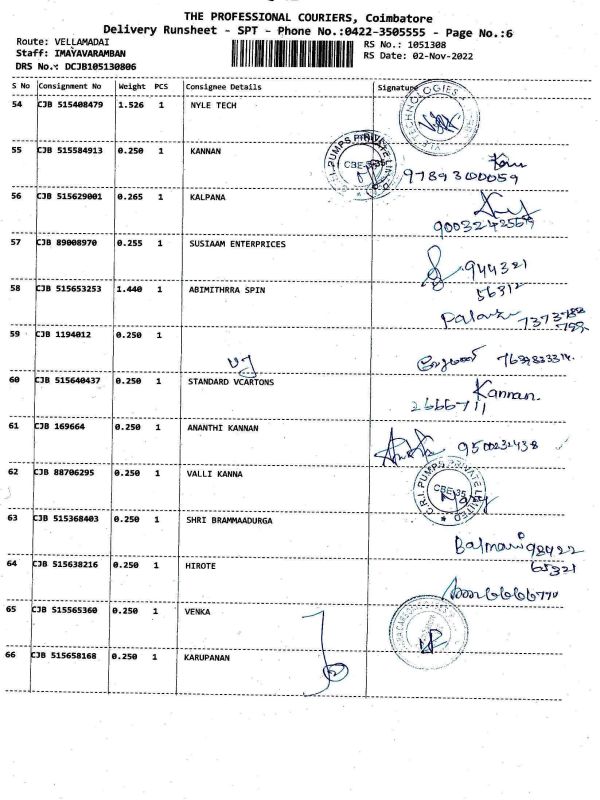 THE PROFESSIONAL COURIERS, Coimbatore
Delivery Runsheet - SPT - Phone No.:0422-3505555 - Page No.:6
Route: VELLAMADAI RS No.: 1051308
Staff: IMAYAVARAMBAN RS Date: 02-Nov-2022
DRS No.: DCJB105130806
S No Consignment No Weight PCS Consignee Details Signature
54 CJB 515408479 1.526 1 NYLE TECH
55 CJB 515584913 0.250 1 KANNAN
C.R.I. PUMPS PRIVATE LIMITED CBE-35
9789300059
56 CJB 515629001 0.265 1 KALPANA
57 CJB 89008970 0.255 1 SUSIAAM ENTERPRICES
944321
58 CJB 515653253 1.440 1 ABIMITHRRA SPIN
59 CJB 1194012 0.250 1
60 CJB 515640437 0.250 1 STANDARD VCARTONS
Kannan.
2666711
61 CJB 169664 0.250 1 ANANTHI KANNAN
9500232438
62 CJB 88706295 0.250 1 VALLI KANNA
C.R.I. PUMPS PRIVATE LIMITED CBE-35
63 CJB 515368403 0.250 1 SHRI BRAMMAADURGA
98422
65321
64 CJB 515638216 0.250 1 HIROTE
65 CJB 515565360 0.250 1 VENKA
66 CJB 515658168 0.250 1 KARUPANAN